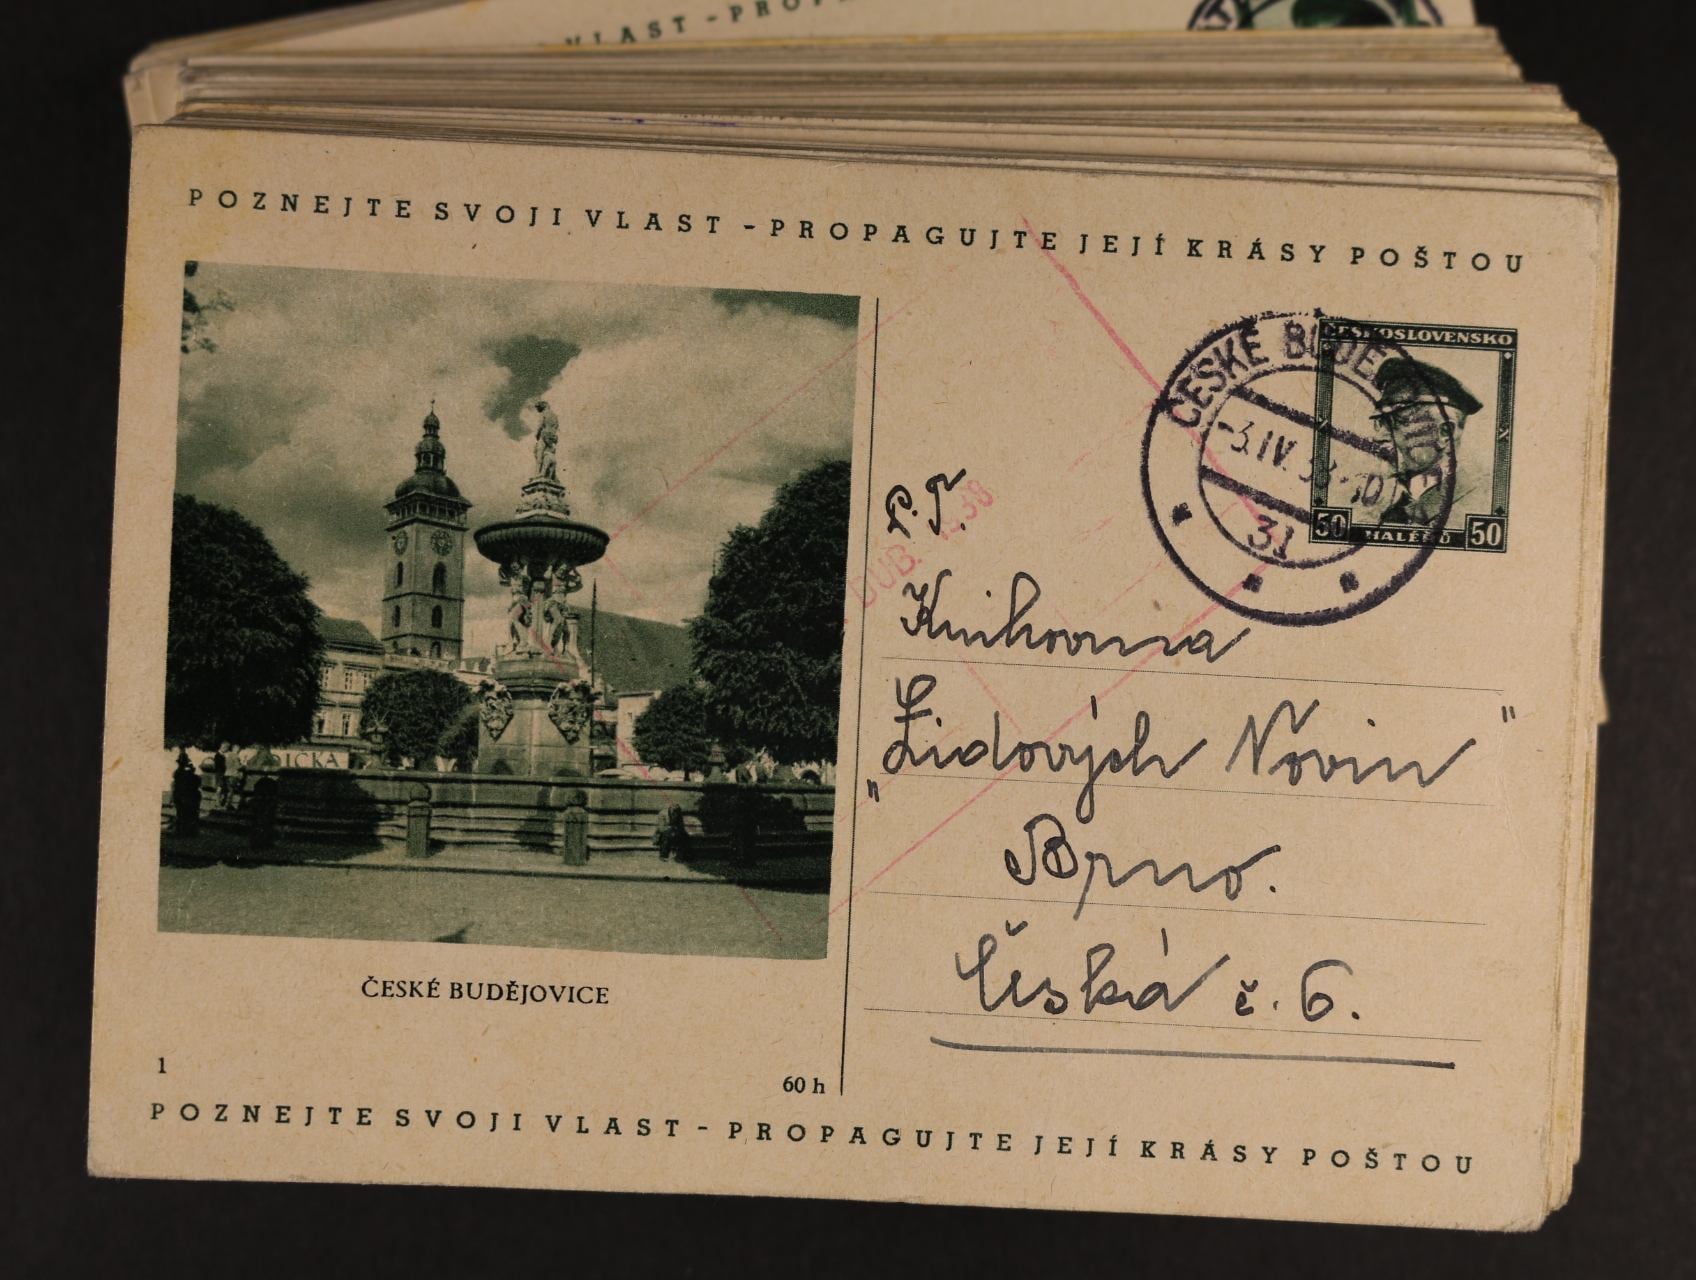 VLAST - PROP
POZNEJTE SVOJI VLAST - PROPAGUJTE JEJÍ KRÁSY POŠTOU
ČESKOSLOVENSKO
ČESKÉ BUDĚJOVICE
-3.IV.38-10
31
50 HALÉŘŮ 50
P. T.
DUB. 1938
Knihovna
„Lidových Novin"
Brno.
Česká č. 6.
DICKA
ČESKÉ BUDĚJOVICE
1
60 h
POZNEJTE SVOJI VLAST - PROPAGUJTE JEJÍ KRÁSY POŠTOU